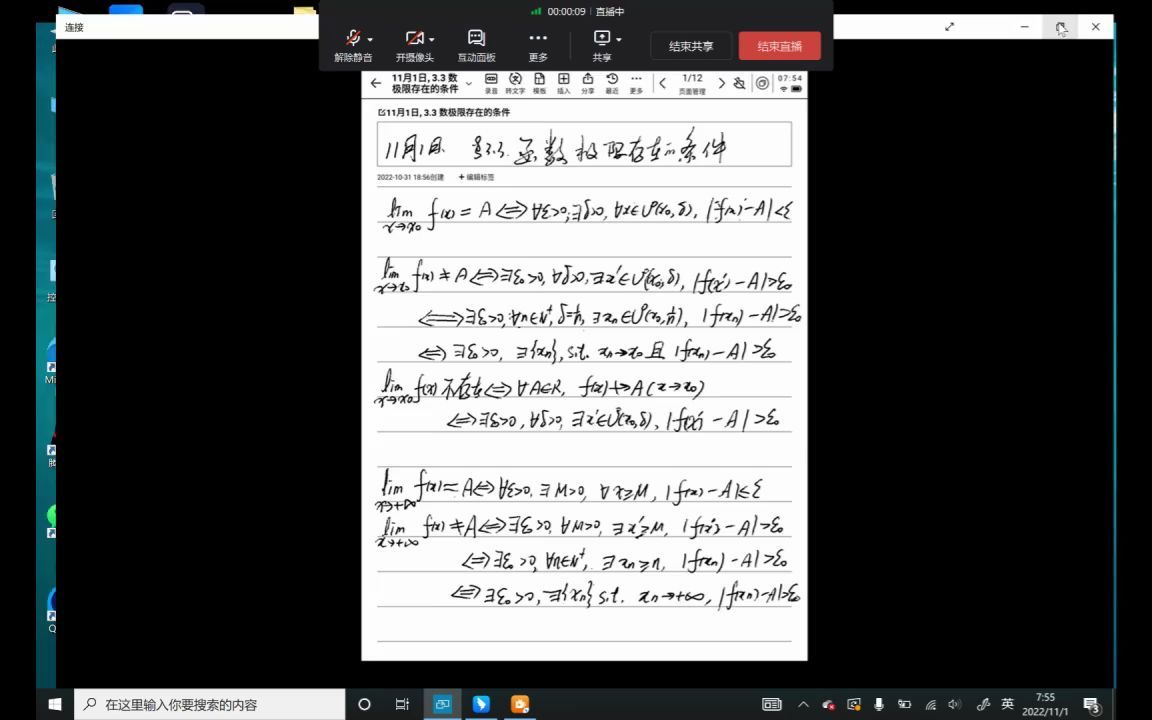 00:00:09 直播中
连接
解除静音 开摄像头 互动面板 更多 共享 结束共享 结束直播
11月1日, 3.3 数
极限存在的条件
录音 转文字 模板 插入 分享 最近 更多
1/12
页面管理
07:54
11月1日, 3.3 数极限存在的条件
11月1日. §3.3. 函数极限存在的条件
2022-10-31 18:56创建 + 编辑标签
lim f(x) = A ⟺ ∀ε>0, ∃δ>0, ∀x∈U°(x₀,δ), |f(x)-A|<ε
x→x₀
lim f(x) ≠ A ⟺ ∃ε₀>0, ∀δ>0, ∃x'∈U°(x₀,δ), |f(x')-A|>ε₀
x→x₀
⟺ ∃ε₀>0, ∀n∈N⁺, δ=1/n, ∃xn∈U°(x₀,1/n), |f(xn)-A|>ε₀
⟺ ∃ε₀>0, ∃{xn}, s.t. xn→x₀ 且 |f(xn)-A|>ε₀
lim f(x) 不存在 ⟺ ∀A∈R, f(x)↛A (x→x₀)
x→x₀
⟺ ∃ε₀>0, ∀δ>0, ∃x'∈U°(x₀,δ), |f(x')-A|>ε₀
lim f(x) = A ⟺ ∀ε>0, ∃M>0, ∀x≥M, |f(x)-A|<ε
x→+∞
lim f(x) ≠ A ⟺ ∃ε₀>0, ∀M>0, ∃x'≥M, |f(x')-A|>ε₀
x→+∞
⟺ ∃ε₀>0, ∀n∈N⁺, ∃xn≥n, |f(xn)-A|>ε₀
⟺ ∃ε₀>0, ∃{xn} s.t. xn→+∞, |f(xn)-A|>ε₀
在这里输入你要搜索的内容
英
7:55
2022/11/1
3